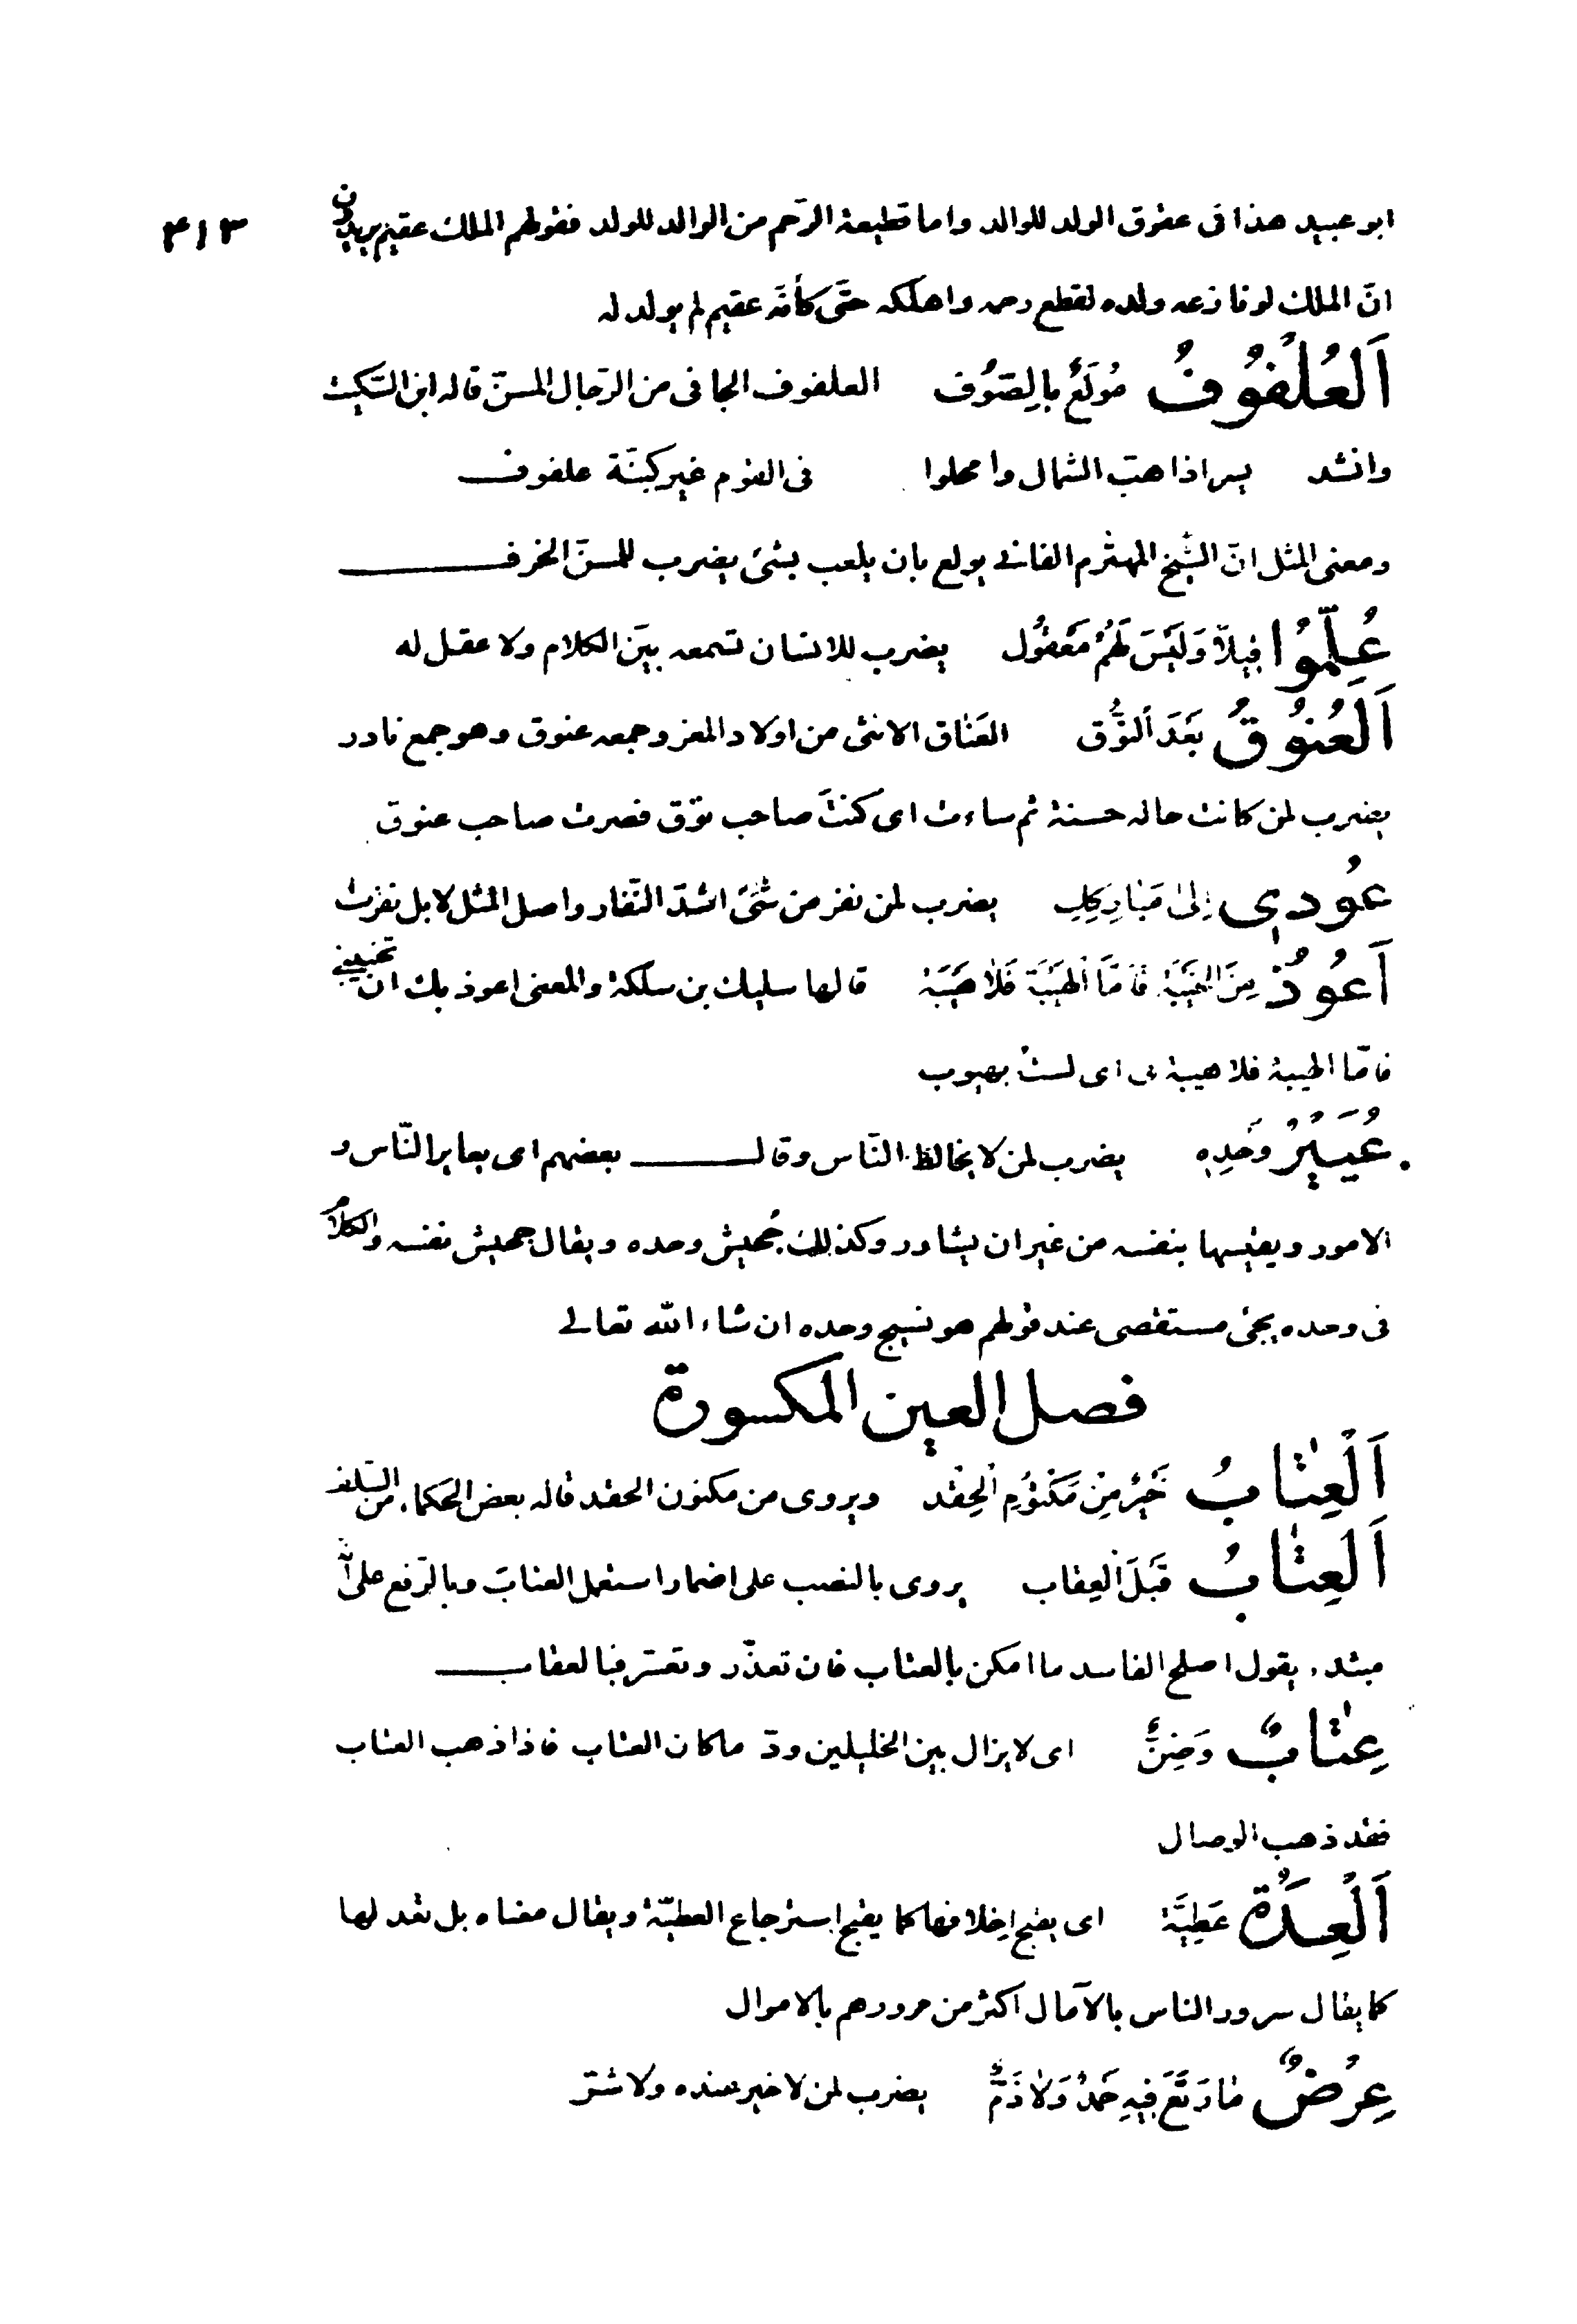 ٣١٣
ابو عبيد هذا فى عقوق الولد للوالد واما قطيعة الرّحم من الوالد للولد فقولهم الملك عقيم يريدون
انّ الملك لو نازعه ولده لقطع رحمه واهلكه حتَّى كأنّه عقيم لم يولد له
اَلعُلْفُوُفُ مُولَعٌ بِالصّوُف العلفوف الجافى من الرّجال المسنّ قاله ابن السّكيت
وانشد يسر اذا هبّ الشمال وامحلوا فى القوم غير كبنّة علفوف
ومعنى المثل انّ الشّيخ المهتّرم الفانى يولع بان يلعب بشئ يضرب للمسنّ الخرف
عُلِّمُوا قِيلاً وَلَيْسَ لَهُمْ مَعْقُول يضرب للانسان تسمعه بيّن الكلام ولا عقل له
اَلعُنُوُقُ بَعْدَ النُّوُق العَنٰاق الانثى من اولاد المعز وجمعه عنوق وهو جمع نادر
يضرب لمن كانت حاله حسنة ثم ساءت اى كنتَ صاحب نوّق فصرت صاحب عنوق
عُوُدى اِلىٰ مَبٰارِكِكِ يضرب لمن نفر من شَئً اشدّ النّفار واصل المثل لابل نفرت
اَعُوُذُ مِنَ الخَيْبَة فَاَمَّا الهَيْبَة فَلاٰ هَيْبَة قالها سليك بن سلكة والمعنى اعوذ بك ان تخيبنى
فامّا الهيبة فلا هيبة بى اى لستُ بهيوب
عُيَيْرُ وَحْدِهِ يضرب لمن لا يخالط النّاس وقال بعضهم اى يعاير النّاس و
الامور ويقيسها بنفسه من غير ان يشاور وكذلك جُحيش وحده ويقال جحيش نفسه والكلامُ
فى وحده يجئ مستقصى عند قولهم هو نسيج وحده ان شاء الله تعالى
فصل العين المكسورة
اَلْعِتٰابُ خَيْرٌ مِنْ مَكْتُوُمِ الْحِقْد ويروى من مكنون الحقد قاله بعض الحكماء من السّلف
اَلعِتٰابُ قَبْلَ الْعِقاب يروى بالنصب على اضمار استعمل العتابَ وبالرّفع على انّه
مبتدء يقول اصلح الفاسد ما امكن بالعتاب فان تعذّر وتعسّر فبالعقاب
عِتٰابٌ وَضِنٌّ اى لا يزال بين الخليلين ودّ ماكان العتاب فاذا ذهب العتاب
فقد ذهب الوصال
اَلْعِدَةُ عَطِيَّة اى يقبح اِخلافها كما يقبح استرجاع العطيّة ويقال معناه بل تعد لها
كما يقال سرور الناس بالآمال اكثر من سرورهم بالاموال
عِرْضٌ مٰا وَقَعَ فِيهِ حَمْدٌ وَلاٰ ذَمٌّ يضرب لمن لا خير عنده ولا شرّ